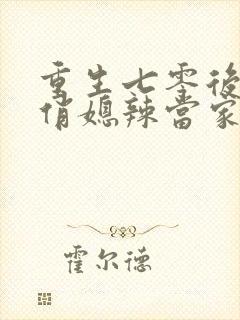 重生七零後
俏媳辣當家
霍尔德